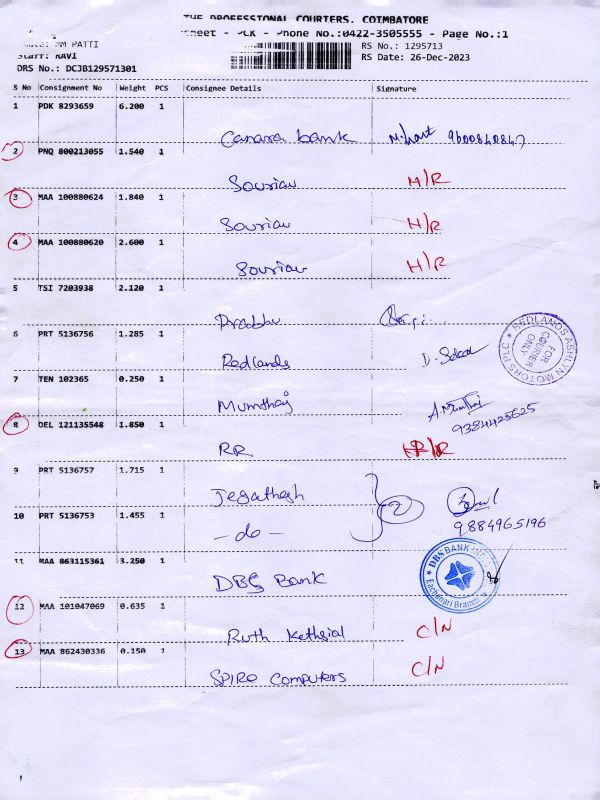 THE PROFESSIONAL COURIERS, COIMBATORE
PLK - Phone No.:0422-3505555 - Page No.:1
MM PATTI
RS No.: 1295713
Staff: RAVI
RS Date: 26-Dec-2023
DRS No.: DCJB129571301
S No Consignment No Weight PCS Consignee Details Signature
1 PDK 8293659 6.200 1
Canara bank 9600840847
2 PNQ 800213055 1.540 1
Souriau H/R
3 MAA 100880624 1.840 1
Souriau H/R
4 MAA 100880620 2.600 1
Souriau H/R
5 TSI 7203938 2.120 1
Prabhu
6 PRT 5136756 1.285 1
Redlands
REDLANDS ASHLYN MOTORS PLC
FOR COURIER ONLY
7 TEN 102365 0.250 1
Mumthaj
9384425625
8 DEL 121135548 1.850 1
RR H/R
9 PRT 5136757 1.715 1
Jegathesh
10 PRT 5136753 1.455 1
- do - 2
9884965196
11 MAA 863115361 3.250 1
DBS Bank
DBS BANK INDIA
Eachanari Branch
12 MAA 101047069 0.635 1
Ruth Kethsial C/N
13 MAA 862430336 0.150 1
SPIRO Computers C/N